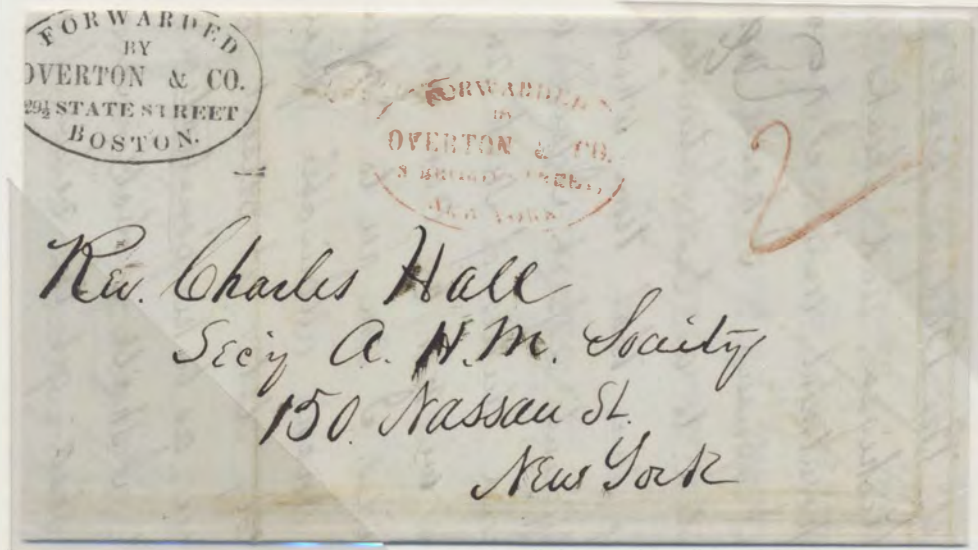 FORWARDED
BY
OVERTON & CO.
29½ STATE STREET
BOSTON.
FORWARDED
BY
OVERTON & CO.
NEW YORK
2
Rev. Charles Hall
Sec'y A. H. M. Society
150. Nassau St.
New York